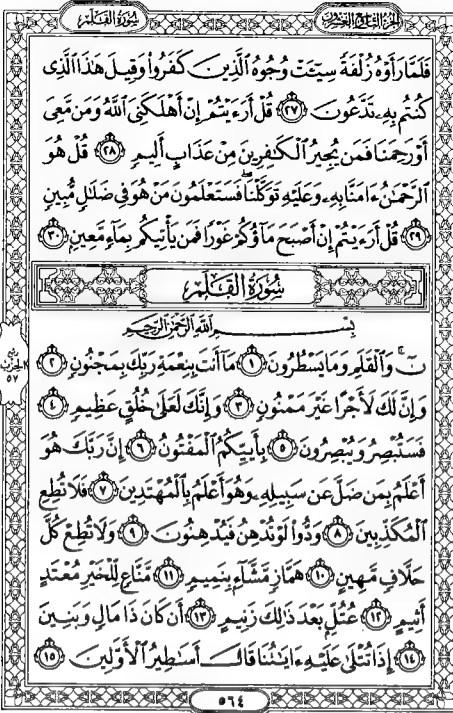 سُورَةُ القَلَمِ
الجُزءُ التَّاسِعُ وَالعِشْرُونَ
فَلَمَّا رَأَوْهُ زُلْفَةً سِيٓـَٔتْ وُجُوهُ ٱلَّذِينَ كَفَرُوا۟ وَقِيلَ هَٰذَا ٱلَّذِى
كُنتُم بِهِۦ تَدَّعُونَ ٢٧ قُلْ أَرَءَيْتُمْ إِنْ أَهْلَكَنِىَ ٱللَّهُ وَمَن مَّعِىَ
أَوْ رَحِمَنَا فَمَن يُجِيرُ ٱلْكَٰفِرِينَ مِنْ عَذَابٍ أَلِيمٍ ٢٨ قُلْ هُوَ
ٱلرَّحْمَٰنُ ءَامَنَّا بِهِۦ وَعَلَيْهِ تَوَكَّلْنَا ۖ فَسَتَعْلَمُونَ مَنْ هُوَ فِى ضَلَٰلٍ مُّبِينٍ
٢٩ قُلْ أَرَءَيْتُمْ إِنْ أَصْبَحَ مَآؤُكُمْ غَوْرًا فَمَن يَأْتِيكُم بِمَآءٍ مَّعِينٍۭ ٣٠
سُورَةُ القَلَمِ
بِسْمِ ٱللَّهِ ٱلرَّحْمَٰنِ ٱلرَّحِيمِ
نٓ ۚ وَٱلْقَلَمِ وَمَا يَسْطُرُونَ ١ مَآ أَنتَ بِنِعْمَةِ رَبِّكَ بِمَجْنُونٍ ٢
وَإِنَّ لَكَ لَأَجْرًا غَيْرَ مَمْنُونٍ ٣ وَإِنَّكَ لَعَلَىٰ خُلُقٍ عَظِيمٍ ٤
فَسَتُبْصِرُ وَيُبْصِرُونَ ٥ بِأَييِّكُمُ ٱلْمَفْتُونُ ٦ إِنَّ رَبَّكَ هُوَ
أَعْلَمُ بِمَن ضَلَّ عَن سَبِيلِهِۦ وَهُوَ أَعْلَمُ بِٱلْمُهْتَدِينَ ٧ فَلَا تُطِعِ
ٱلْمُكَذِّبِينَ ٨ وَدُّوا۟ لَوْ تُدْهِنُ فَيُدْهِنُونَ ٩ وَلَا تُطِعْ كُلَّ
حَلَّافٍ مَّهِينٍ ١٠ هَمَّازٍ مَّشَّآءٍۭ بِنَمِيمٍ ١١ مَّنَّاعٍ لِّلْخَيْرِ مُعْتَدٍ
أَثِيمٍ ١٢ عُتُلٍّۭ بَعْدَ ذَٰلِكَ زَنِيمٍ ١٣ أَن كَانَ ذَا مَالٍ وَبَنِينَ
١٤ إِذَا تُتْلَىٰ عَلَيْهِ ءَايَٰتُنَا قَالَ أَسَٰطِيرُ ٱلْأَوَّلِينَ ١٥
ربع
الحزب
٥٧
٥٦٤